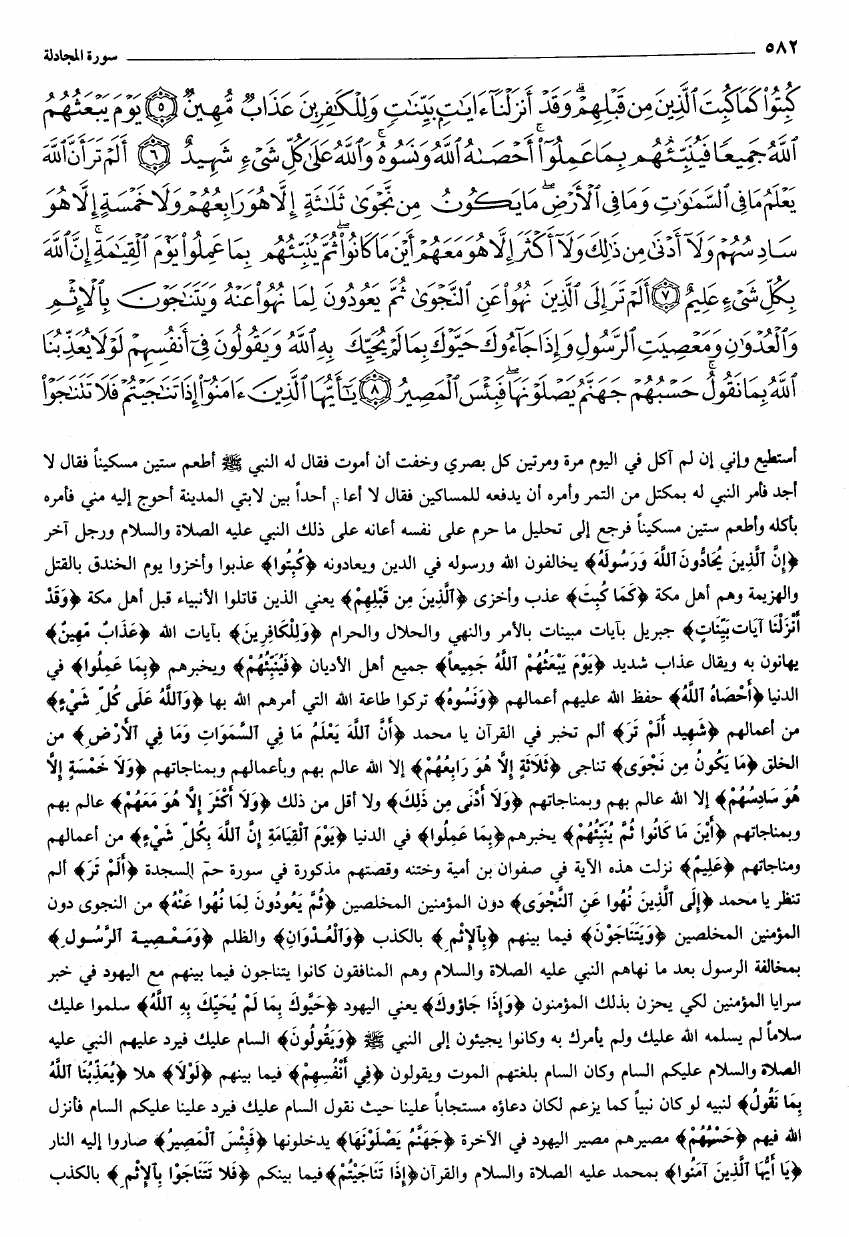 ٥٨٢ سورة المجادلة
كُبِتُوا۟ كَمَا كُبِتَ ٱلَّذِينَ مِن قَبْلِهِمْ ۚ وَقَدْ أَنزَلْنَآ ءَايَٰتٍۭ بَيِّنَٰتٍ ۚ وَلِلْكَٰفِرِينَ عَذَابٌ مُّهِينٌ ٥ يَوْمَ يَبْعَثُهُمُ
ٱللَّهُ جَمِيعًا فَيُنَبِّئُهُم بِمَا عَمِلُوٓا۟ ۚ أَحْصَىٰهُ ٱللَّهُ وَنَسُوهُ ۚ وَٱللَّهُ عَلَىٰ كُلِّ شَىْءٍ شَهِيدٌ ٦ أَلَمْ تَرَ أَنَّ ٱللَّهَ
يَعْلَمُ مَا فِى ٱلسَّمَٰوَٰتِ وَمَا فِى ٱلْأَرْضِ ۖ مَا يَكُونُ مِن نَّجْوَىٰ ثَلَٰثَةٍ إِلَّا هُوَ رَابِعُهُمْ وَلَا خَمْسَةٍ إِلَّا هُوَ
سَادِسُهُمْ وَلَآ أَدْنَىٰ مِن ذَٰلِكَ وَلَآ أَكْثَرَ إِلَّا هُوَ مَعَهُمْ أَيْنَ مَا كَانُوا۟ ۖ ثُمَّ يُنَبِّئُهُم بِمَا عَمِلُوا۟ يَوْمَ ٱلْقِيَٰمَةِ ۚ إِنَّ ٱللَّهَ
بِكُلِّ شَىْءٍ عَلِيمٌ ٧ أَلَمْ تَرَ إِلَى ٱلَّذِينَ نُهُوا۟ عَنِ ٱلنَّجْوَىٰ ثُمَّ يَعُودُونَ لِمَا نُهُوا۟ عَنْهُ وَيَتَنَٰجَوْنَ بِٱلْإِثْمِ
وَٱلْعُدْوَٰنِ وَمَعْصِيَتِ ٱلرَّسُولِ وَإِذَا جَآءُوكَ حَيَّوْكَ بِمَا لَمْ يُحَيِّكَ بِهِ ٱللَّهُ وَيَقُولُونَ فِىٓ أَنفُسِهِمْ لَوْلَا يُعَذِّبُنَا
ٱللَّهُ بِمَا نَقُولُ ۚ حَسْبُهُمْ جَهَنَّمُ يَصْلَوْنَهَا ۖ فَبِئْسَ ٱلْمَصِيرُ ٨ يَٰٓأَيُّهَا ٱلَّذِينَ ءَامَنُوٓا۟ إِذَا تَنَٰجَيْتُمْ فَلَا تَتَنَٰجَوْا۟
أستطيع وإني إن لم آكل في اليوم مرة ومرتين كل بصري وخفت أن أموت فقال له النبي ﷺ أطعم ستين مسكيناً فقال لا
أجد فأمر النبي له بمكتل من التمر وأمره أن يدفعه للمساكين فقال لا أعلم أحداً بين لابتي المدينة أحوج إليه مني فأمره
بأكله وأطعم ستين مسكيناً فرجع إلى تحليل ما حرم على نفسه أعانه على ذلك النبي عليه الصلاة والسلام ورجل آخر
﴿إِنَّ ٱلَّذِينَ يُحَادُّونَ ٱللَّهَ وَرَسُولَهُ﴾ يخالفون الله ورسوله في الدين ويعادونه ﴿كُبِتُوا﴾ عذبوا وأخزوا يوم الخندق بالقتل
والهزيمة وهم أهل مكة ﴿كَمَا كُبِتَ﴾ عذب وأخزى ﴿ٱلَّذِينَ مِن قَبْلِهِمْ﴾ يعني الذين قاتلوا الأنبياء قبل أهل مكة ﴿وَقَدْ
أَنْزَلْنَا آيَاتٍ بَيِّنَاتٍ﴾ جبريل بآيات مبينات بالأمر والنهي والحلال والحرام ﴿وَلِلْكَافِرِينَ﴾ بآيات الله ﴿عَذَابٌ مُهِينٌ﴾
يهانون به ويقال عذاب شديد ﴿يَوْمَ يَبْعَثُهُمْ ٱللَّهُ جَمِيعاً﴾ جميع أهل الأديان ﴿فَيُنَبِّئُهُمْ﴾ ويخبرهم ﴿بِمَا عَمِلُوا﴾ في
الدنيا ﴿أَحْصَاهُ ٱللَّهُ﴾ حفظ الله عليهم أعمالهم ﴿وَنَسُوهُ﴾ تركوا طاعة الله التي أمرهم الله بها ﴿وَٱللَّهُ عَلَى كُلِّ شَيْءٍ﴾
من أعمالهم ﴿شَهِيد أَلَمْ تَرَ﴾ ألم تخبر في القرآن يا محمد ﴿أَنَّ ٱللَّهَ يَعْلَمُ مَا فِي ٱلسَّمٰوَاتِ وَمَا فِي ٱلأَرْضِ﴾ من
الخلق ﴿مَا يَكُونُ مِن نَجْوَى﴾ تناجى ﴿ثَلَاثَةٍ إِلَّا هُوَ رَابِعُهُمْ﴾ إلا الله عالم بهم وبأعمالهم وبمناجاتهم ﴿وَلَا خَمْسَةٍ إِلَّا
هُوَ سَادِسُهُمْ﴾ إلا الله عالم بهم وبمناجاتهم ﴿وَلَا أَدْنَى مِن ذَلِكَ﴾ ولا أقل من ذلك ﴿وَلَا أَكْثَرَ إِلَّا هُوَ مَعَهُمْ﴾ عالم بهم
وبمناجاتهم ﴿أَيْنَ مَا كَانُوا ثُمَّ يُنَبِّئُهُمْ﴾ يخبرهم ﴿بِمَا عَمِلُوا﴾ في الدنيا ﴿يَوْمَ ٱلْقِيَامَةِ إِنَّ ٱللَّهَ بِكُلِّ شَيْءٍ﴾ من أعمالهم
ومناجاتهم ﴿عَلِيمٌ﴾ نزلت هذه الآية في صفوان بن أمية وختنه وقصتهم مذكورة في سورة حمّ السجدة ﴿أَلَمْ تَرَ﴾ ألم
تنظر يا محمد ﴿إِلَى ٱلَّذِينَ نُهُوا عَنِ ٱلنَّجْوَى﴾ دون المؤمنين المخلصين ﴿ثُمَّ يَعُودُونَ لِمَا نُهُوا عَنْهُ﴾ من النجوى دون
المؤمنين المخلصين ﴿وَيَتَنَاجَوْنَ﴾ فيما بينهم ﴿بِٱلإِثْمِ﴾ بالكذب ﴿وَٱلْعُدْوَانِ﴾ والظلم ﴿وَمَعْصِيةِ ٱلرَّسُولِ﴾
بمخالفة الرسول بعد ما نهاهم النبي عليه الصلاة والسلام وهم المنافقون كانوا يتناجون فيما بينهم مع اليهود في خبر
سرايا المؤمنين لكي يحزن بذلك المؤمنون ﴿وَإِذَا جَاؤُوكَ﴾ يعني اليهود ﴿حَيَّوكَ بِمَا لَمْ يُحَيِّكَ بِهِ ٱللَّهُ﴾ سلموا عليك
سلاماً لم يسلمه الله عليك ولم يأمرك به وكانوا يجيئون إلى النبي ﷺ ﴿وَيَقُولُونَ﴾ السام عليك فيرد عليهم النبي عليه
الصلاة والسلام عليكم السام وكان السام بلغتهم الموت ويقولون ﴿فِي أَنْفُسِهِمْ﴾ فيما بينهم ﴿لَوْلَا﴾ هلا ﴿يُعَذِّبُنَا ٱللَّهُ
بِمَا نَقُولُ﴾ لنبيه لو كان نبياً كما يزعم لكان دعاؤه مستجاباً علينا حيث نقول السام عليك فيرد علينا عليكم السام فأنزل
الله فيهم ﴿حَسْبُهُمْ﴾ مصيرهم مصير اليهود في الآخرة ﴿جَهَنَّمُ يَصْلَوْنَهَا﴾ يدخلونها ﴿فَبِئْسَ ٱلْمَصِيرُ﴾ صاروا إليه النار
﴿يَا أَيُّهَا ٱلَّذِينَ آمَنُوا﴾ بمحمد عليه الصلاة والسلام والقرآن ﴿إِذَا تَنَاجَيْتُمْ﴾ فيما بينكم ﴿فَلَا تَتَنَاجَوْا بِٱلإِثْمِ﴾ بالكذب